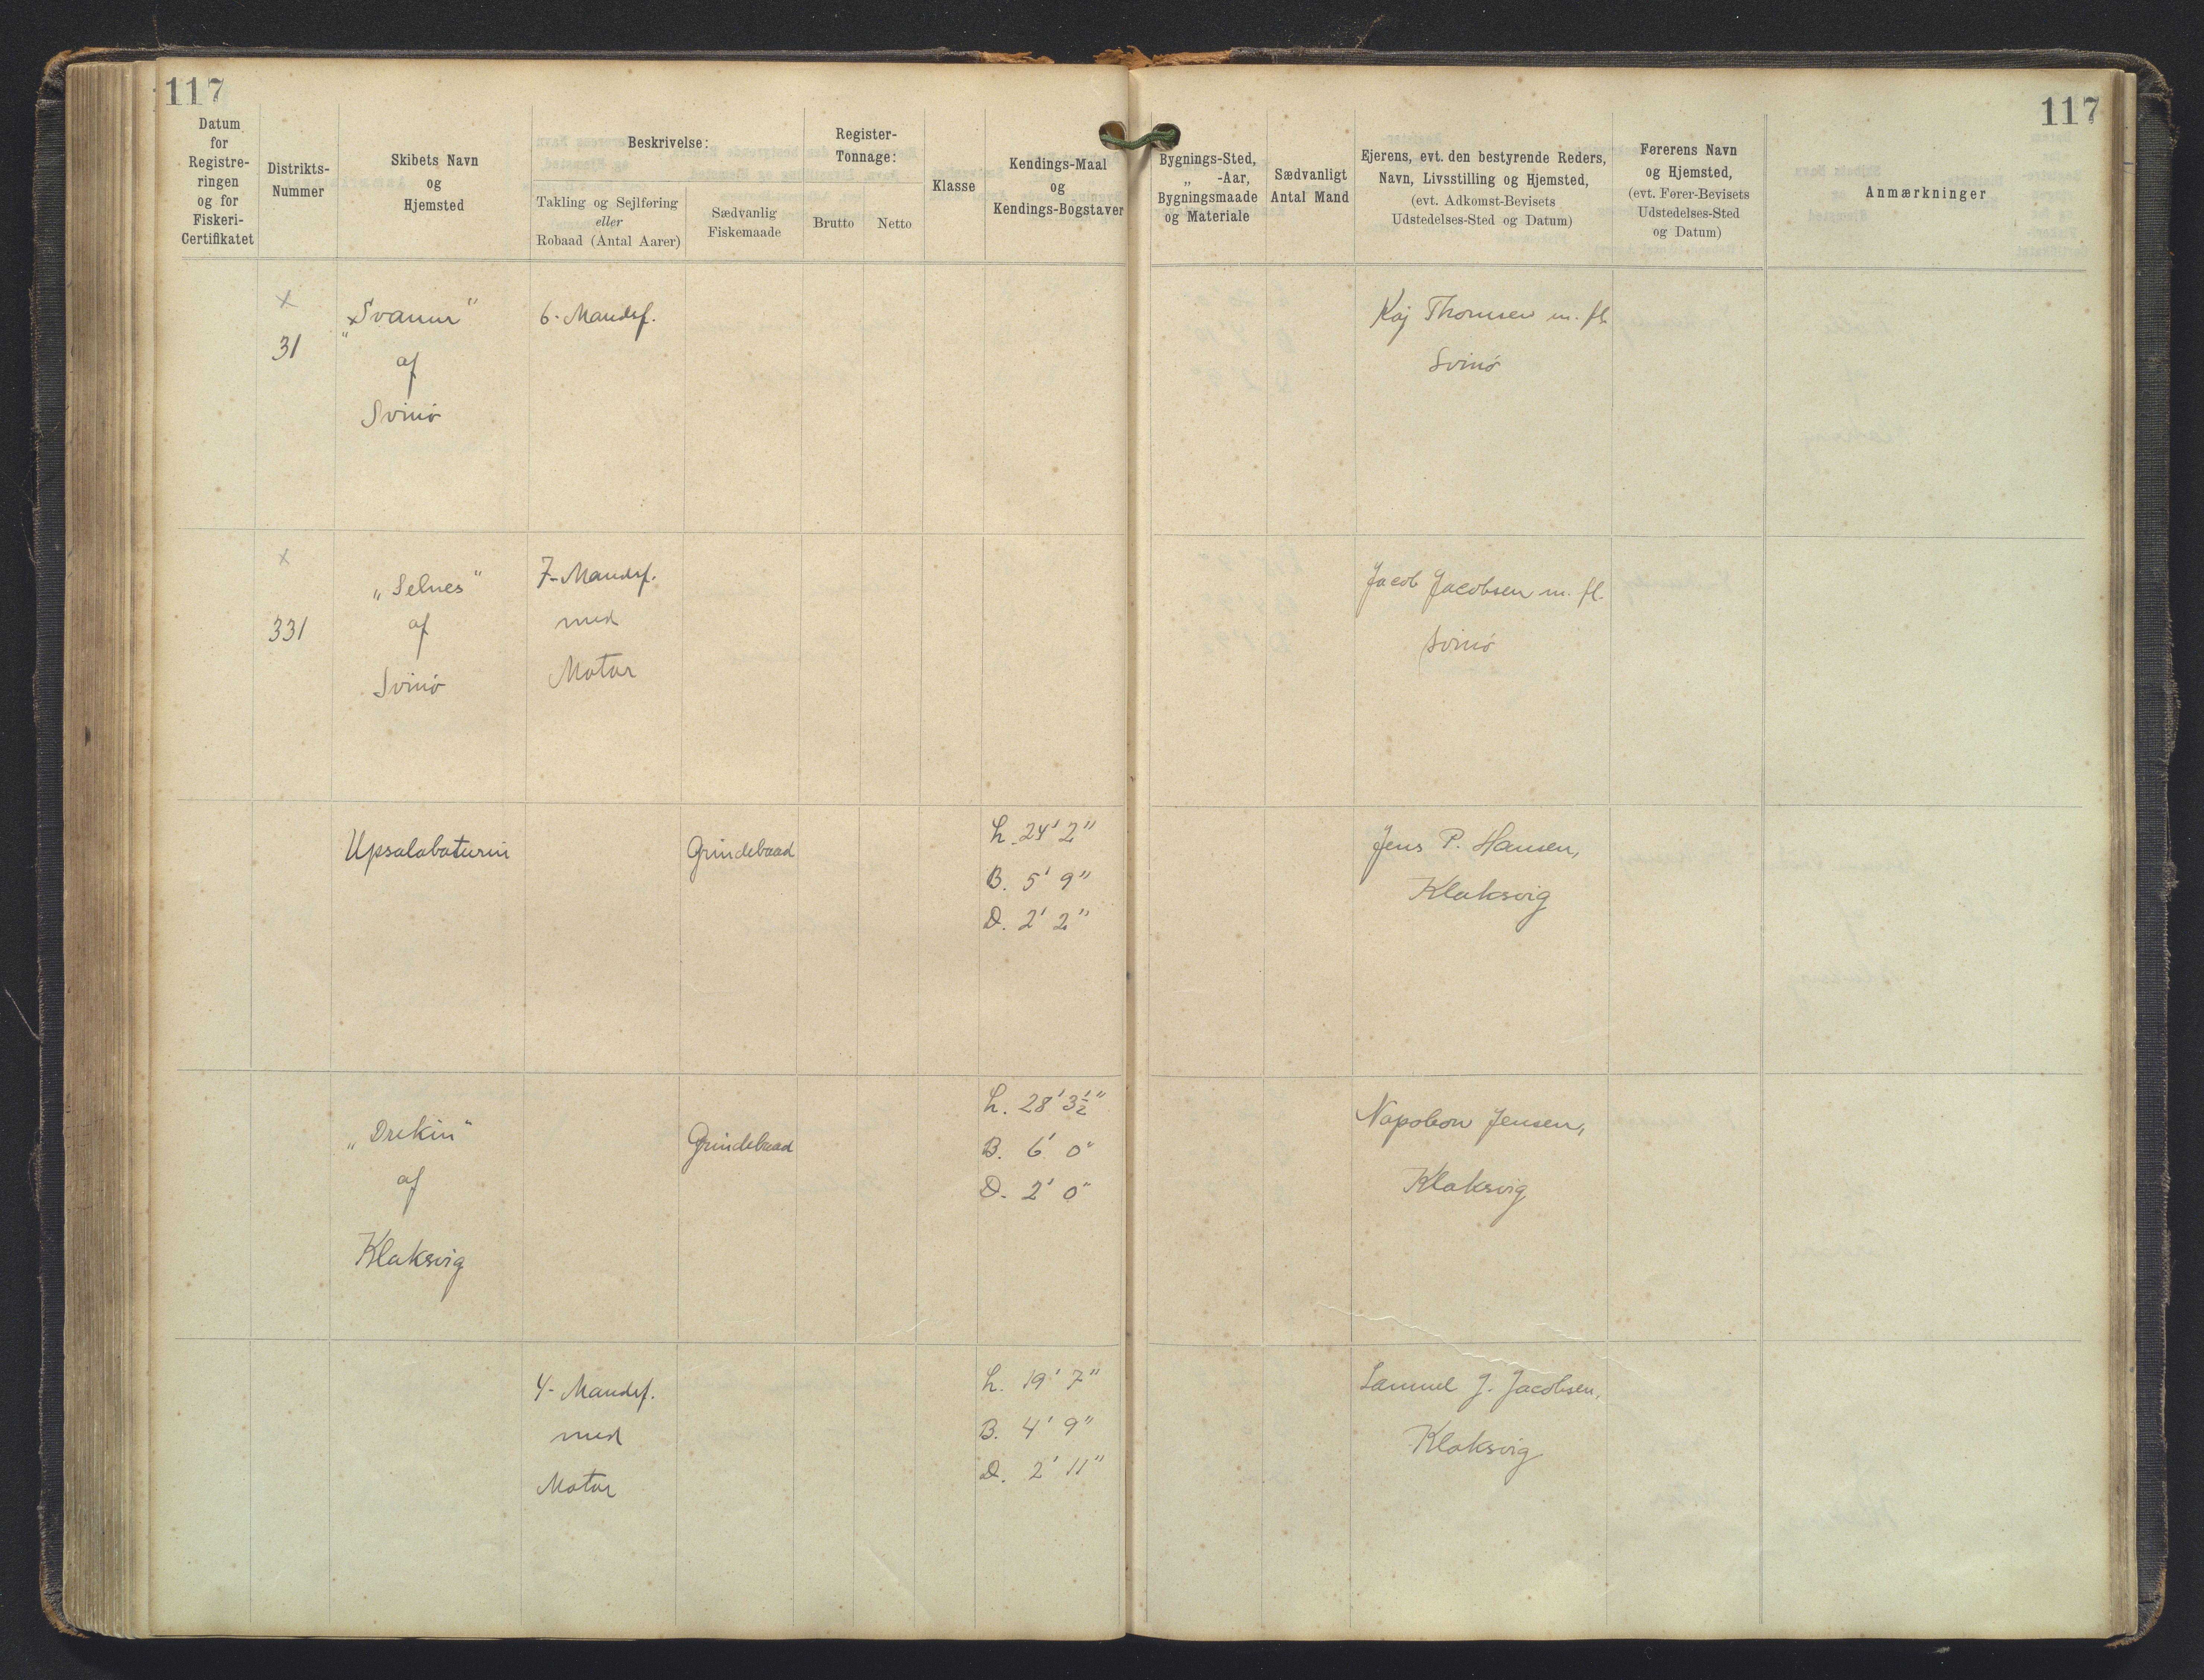 117
117
Datum
for
Registre-
ringen
og for
Fiskeri-
Certifikatet
Distrikts-
Nummer
Skibets Navn
og
Hjemsted
Beskrivelse:
Takling og Sejlføring
eller
Robaad (Antal Aarer)
Sædvanlig
Fiskemaade
Register-
Tonnage:
Brutto
Netto
Klasse
Kendings-Maal
og
Kendings-Bogstaver
Bygnings-Sted,
„ -Aar,
Bygningsmaade
og Materiale
Sædvanligt
Antal Mand
Ejerens, evt. den bestyrende Reders,
Navn, Livsstilling og Hjemsted,
(evt. Adkomst-Bevisets
Udstedelses-Sted og Datum)
Førerens Navn
og Hjemsted,
(evt. Fører-Bevisets
Udstedelses-Sted
og Datum)
Anmærkninger
x
31
x „Svanur"
af
Svinø
6-Mandsf.
Kaj Thomsen m. fl.
Svinø
x
331
„Selnes"
af
Svinø
7-Mandsf.
med
Motor
Jacob Jacobsen m. fl.
Svinø
Upsalabaturin
Grindebaad
L. 24' 2"
B. 5' 9"
D. 2' 2"
Jens P. Hansen,
Klaksvig
„Drekin"
af
Klaksvig
Grindebaad
L. 28' 3½"
B. 6' 0"
D. 2' 0"
Napoleon Jensen,
Klaksvig
4-Mandsf.
med
Motor
L. 19' 7"
B. 4' 9"
D. 2' 11"
Samuel J. Jacobsen,
Klaksvig